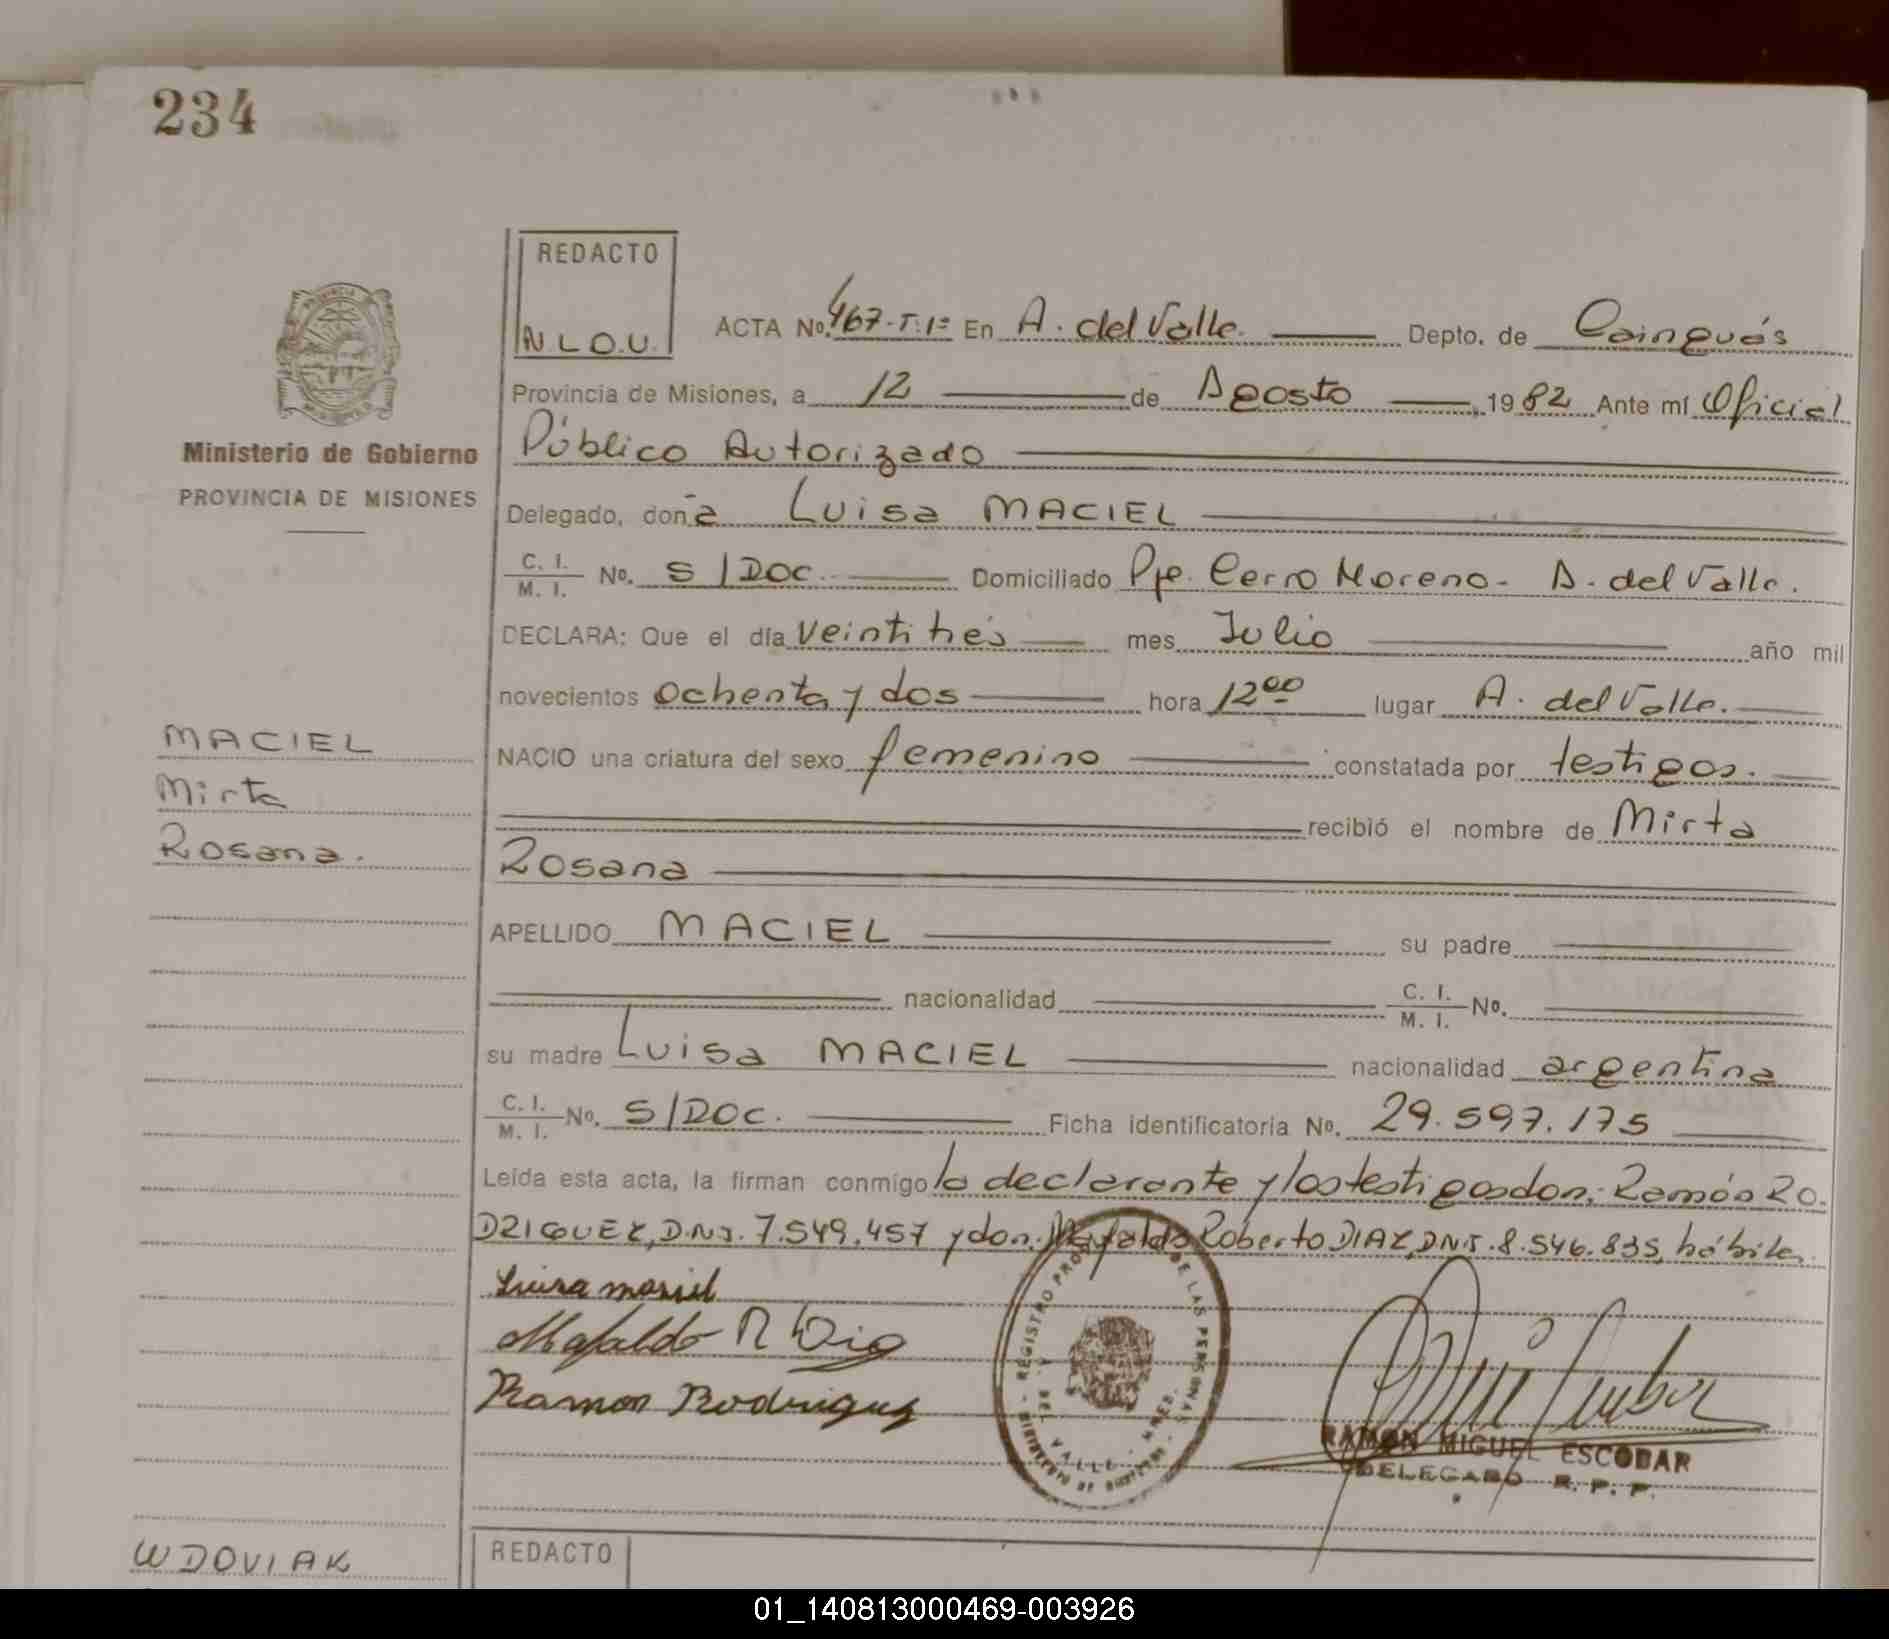 234
REDACTO
N.L.O.U.
Ministerio de Gobierno
PROVINCIA DE MISIONES
ACTA No. 467-T:1º En A. del Valle. Depto. de Cainguás
Provincia de Misiones, a 12 de Agosto, 1982 Ante mí Oficial
Público Autorizado
Delegado, doña Luisa MACIEL
C. I. / M. I. No. S/DOC. Domiciliado Pje. Cerro Moreno - A. del Valle.
DECLARA: Que el día veintitrés mes Julio año mil
novecientos ochenta y dos hora 12ºº lugar A. del Valle.
NACIO una criatura del sexo femenino constatada por testigos.
recibió el nombre de Mirta
Rosana
APELLIDO MACIEL su padre
nacionalidad C. I. / M. I. No.
su madre Luisa MACIEL nacionalidad argentina
C. I. / M. I. No. S/DOC. Ficha identificatoria No. 29.597.175
Leída esta acta, la firman conmigo la declarante y los testigos don: Ramón RO-
DRIGUEZ, D.N.I. 7.549.457 y don: Mafaldo Roberto DIAZ, D.N.I. 8.546.835, hábiles.
MACIEL
Mirta
Rosana.
Luisa masiel
Mafaldo R Diaz
Ramon Rodriguez
REGISTRO PRO DE LAS PERSONAS
DEL VALLE - MNES.
RAMON MIGUEL ESCOBAR
DELEGADO R. P. P.
WDOVIAK
REDACTO
01_140813000469-003926